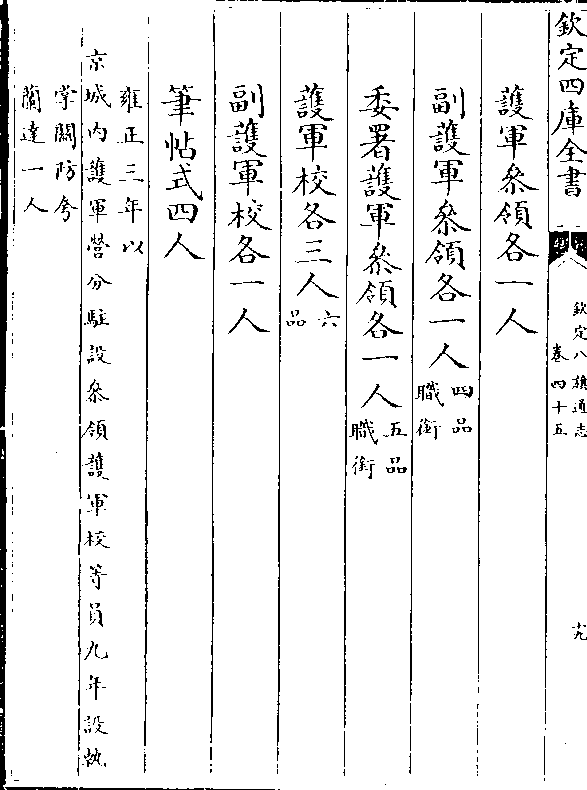 欽定四庫全書
欽定八旗通志
卷四十五
十九
護軍叅領各一人
副護軍叅領各一人四品
職銜
委署護軍叅領各一人五品
職銜
護軍校各三人六
品
副護軍校各一人
筆帖式四人
雍正三年以
京城內護軍營分駐設叅領護軍校等員九年設執
掌關防夸
蘭達一人